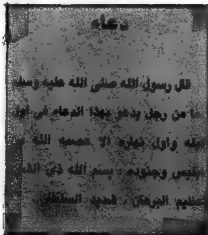 دعاء
قال رسول الله صلى الله عليه وسلم
ما من رجل يدعو بهذا الدعاء في اول
ليله واول نهاره الا عصمه الله من
ابليس وجنوده بسم الله ذي الشأن
عظيم البرهان شديد السلطان